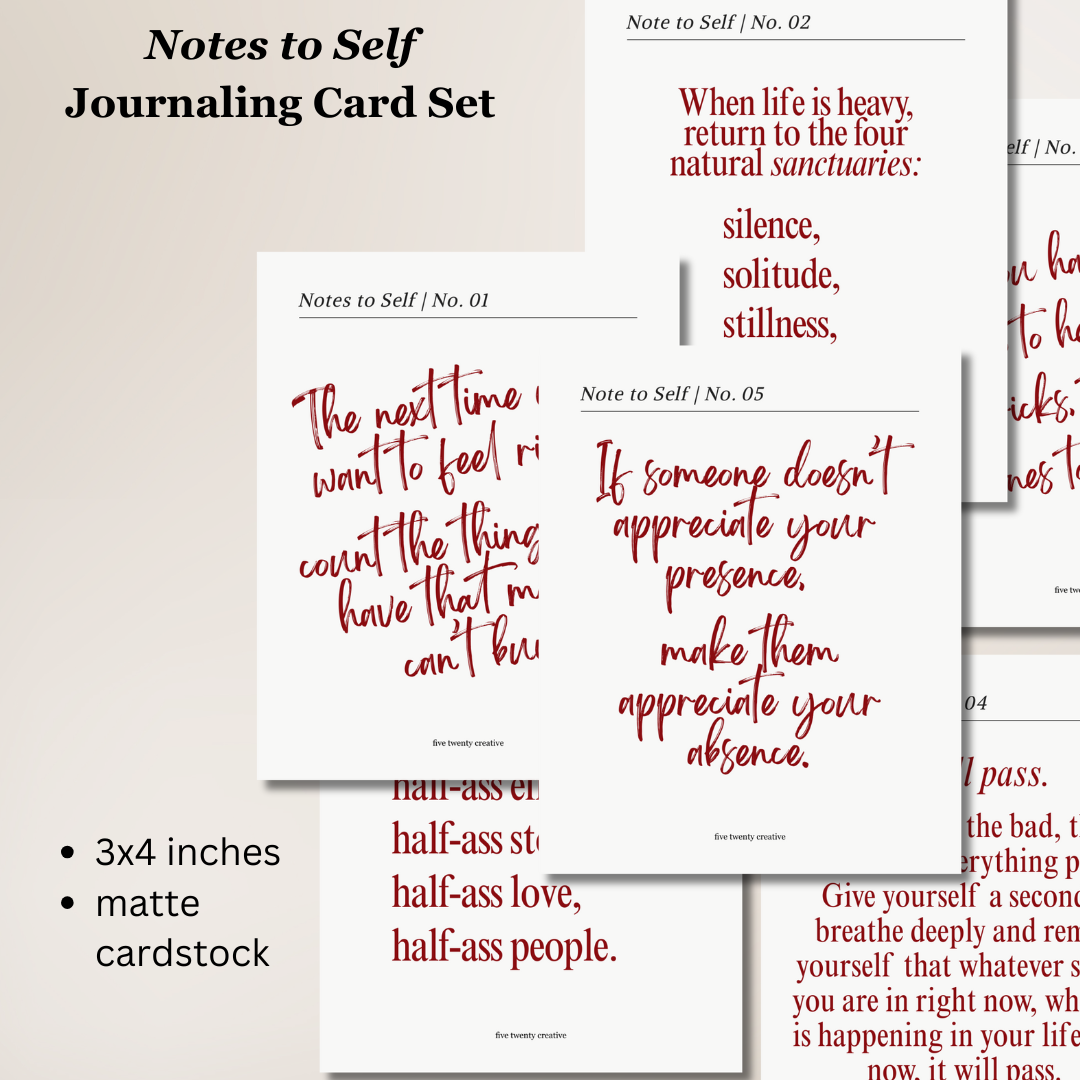 Notes to Self
Journaling Card Set
Note to Self | No. 02
When life is heavy,
return to the four
natural sanctuaries:
silence,
solitude,
stillness,
Notes to Self | No. 01
The next time
want to feel
count the thing
have that
can't
five twenty creative
Note to Self | No. 05
If someone doesn't
appreciate your
presence,
make them
appreciate your
absence.
five twenty creative
elf | No.
ha
to
icks.
nes to
five
half-ass
half-ass
half-ass love,
half-ass people.
five twenty creative
04
ll pass.
the bad,
erything
Give yourself a second
breathe deeply and
yourself that whatever
you are in right now,
is happening in your life
now, it will pass.
3x4 inches
matte
cardstock